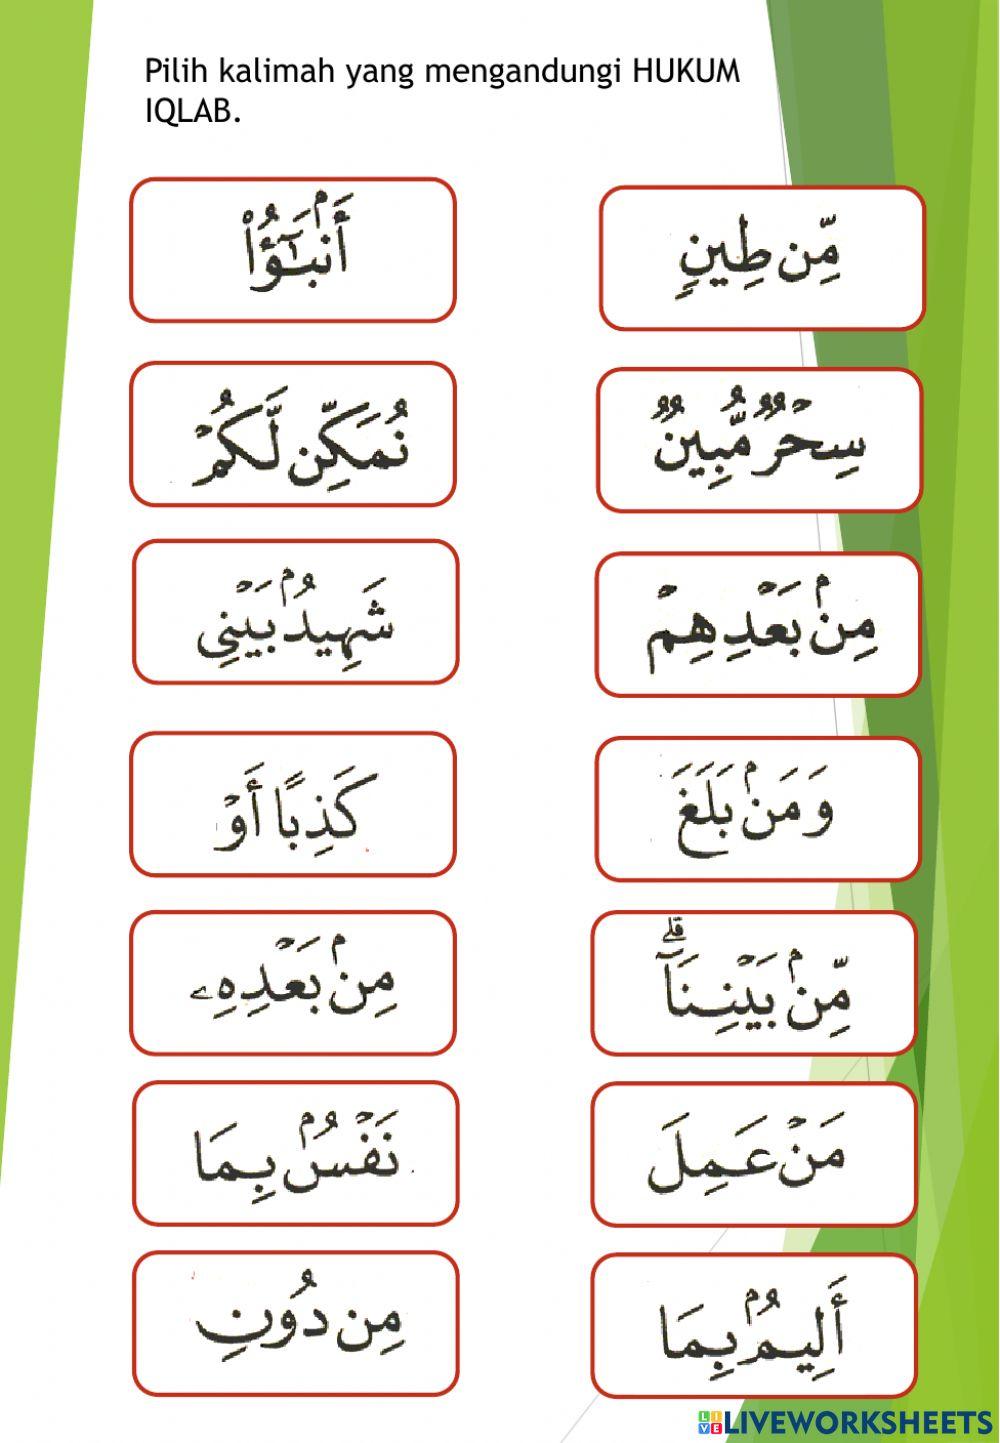 Pilih kalimah yang mengandungi HUKUM
IQLAB.
أَنۢبَـٰٓؤُا۟
مِّن طِينٍ
نُمَكِّن لَّكُمْ
سِحْرٌ مُّبِينٌ
شَهِيدُۢ بَيْنِى
مِنۢ بَعْدِهِمْ
كَذِبًا أَوْ
وَمَنۢ بَلَغَ
مِنۢ بَعْدِهِۦ
مِّنۢ بَيْنِنَآ ۗ
نَفْسُۢ بِمَا
مَنْ عَمِلَ
مِن دُونِ
أَلِيمُۢ بِمَا
LIVE LIVEWORKSHEETS